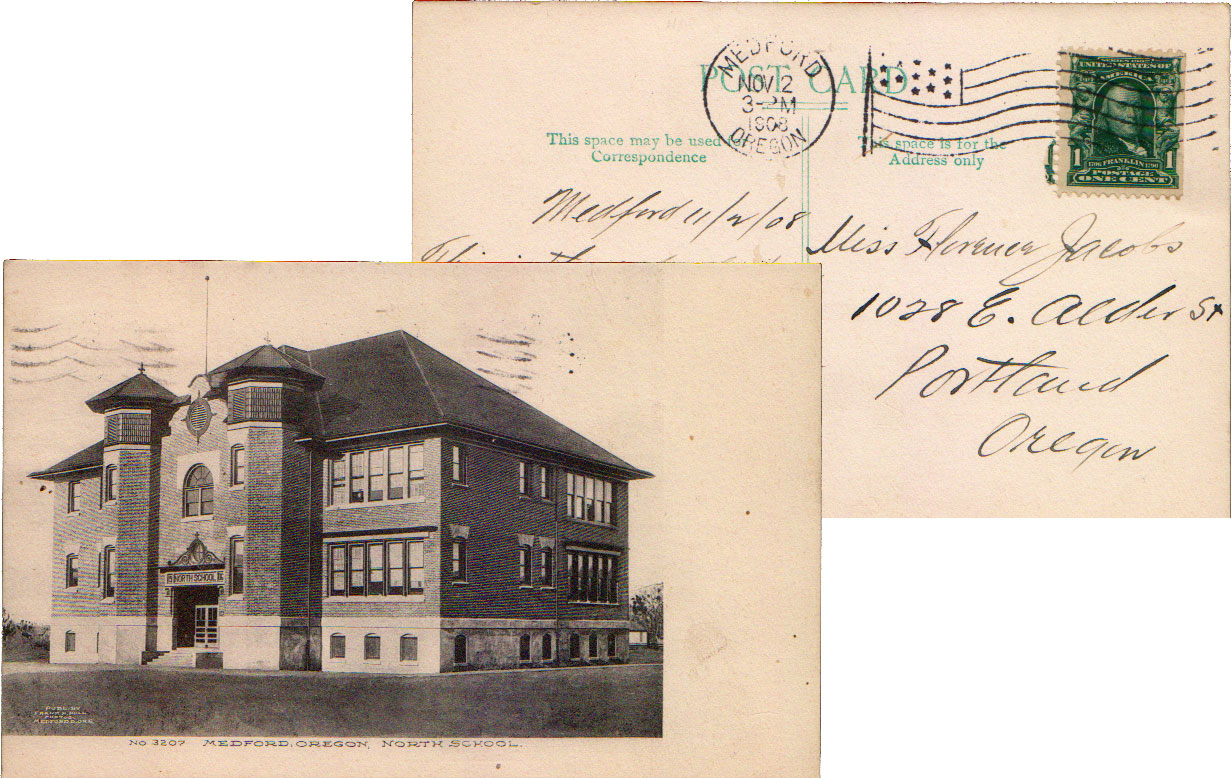 POST CARD
MEDFORD
NOV 2
3-PM
1908
OREGON
SERIES 1902
UNITED STATES OF
AMERICA
1 FRANKLIN 1
1706 1790
POSTAGE
ONE CENT
This space may be used for
Correspondence
This space is for the
Address only
Medford 11/2/08
Miss Florence Jacobs
1028 E. Alder St
Portland
Oregon
NORTH SCHOOL
PUBL. BY
FRANK HULL
PHOTOS.
MEDFORD, ORG.
No 3207 MEDFORD, OREGON, NORTH SCHOOL.